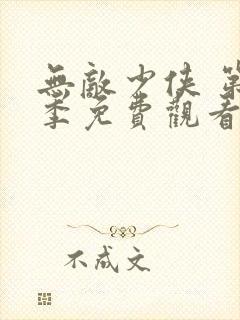 無敵少俠 第
季免費觀看
不成文